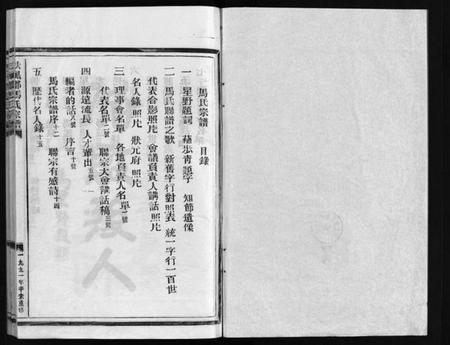 馬氏宗譜 目錄
一 星野題詞 藉步青題字 知節遺像
二 馬氏聯譜之歌 新舊字行對照表 統一字行一百世
代表合影照片 會議負責人講話照片
名人錄照片 狀元府照片
三 理事會名單 各地負責人名單一號
代表名單二號 聯宗大會講話稿三號
四 源遠流長 人才輩出五號
編者的話八號 序言十號
馬氏宗譜序十二 聯宗有感詩十四
五 歷代名人錄十五
扶風郡馬氏宗譜
一九九一年辛未重修